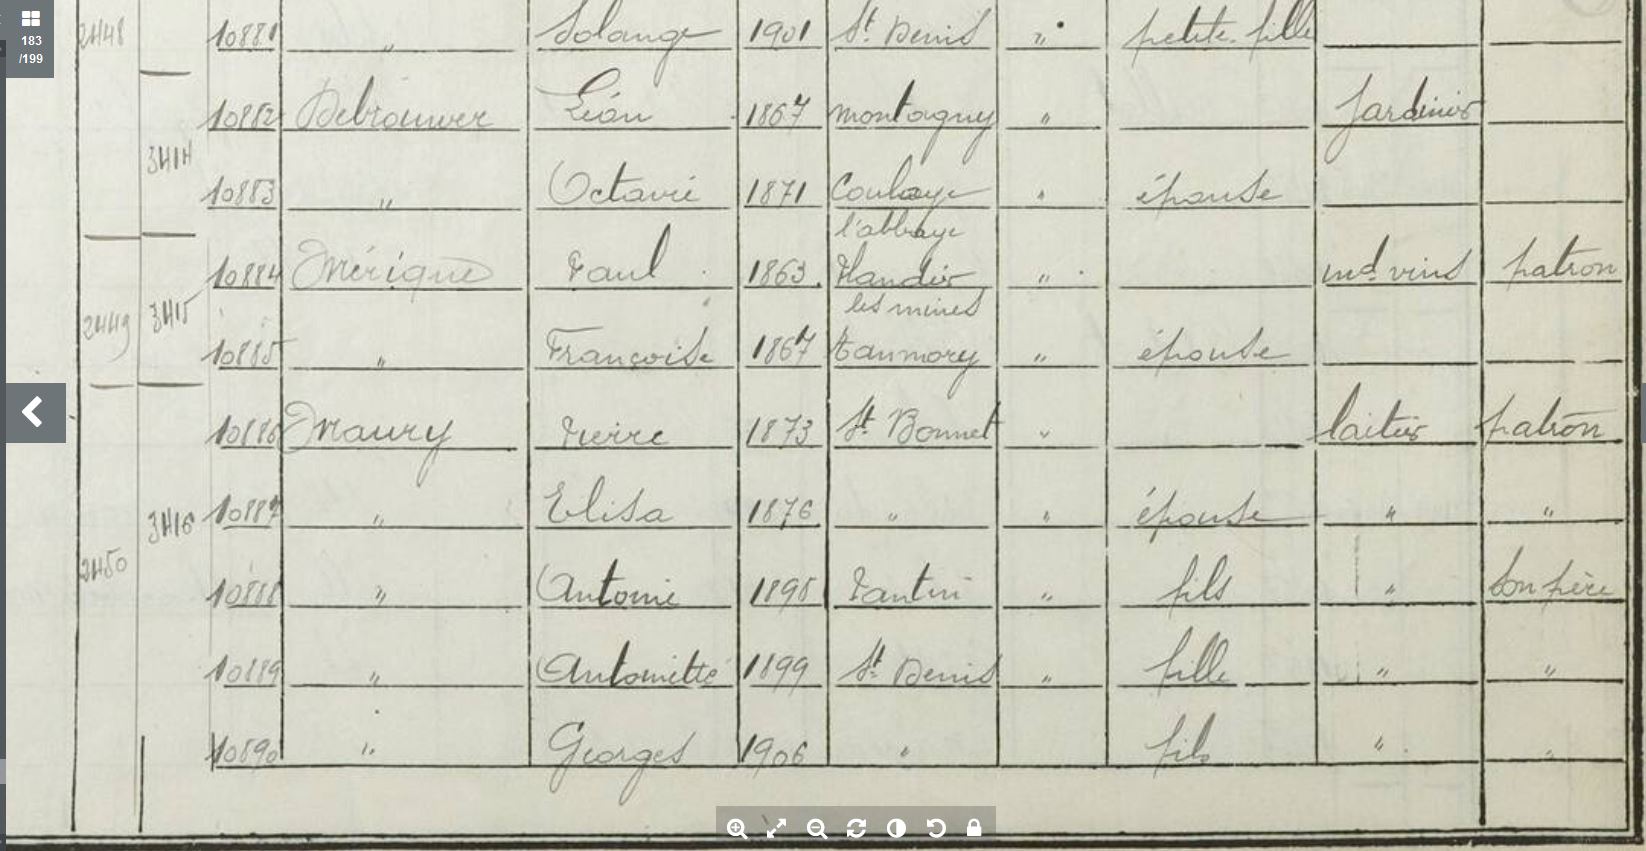 183
/199
2448 10881 " Solange 1901 St Denis " petite-fille
10882 Debrouwer Léon 1867 montagny " Jardinier
3414
10883 " Octavie 1871 " épouse
l'abbaye
10884 Mérigue Paul 1863 " md vins patron
les mines
2449 3415
10885 " Françoise 1867 " épouse
10886 Maury Pierre 1873 St Bonnet " laitier patron
3416 10887 " Elisa 1876 " " épouse " "
2450
10888 " Antoine 1895 Pantin " fils " son père
10889 " Antoinette 1899 St Denis " fille " "
10890 " Georges 1906 " fils " "